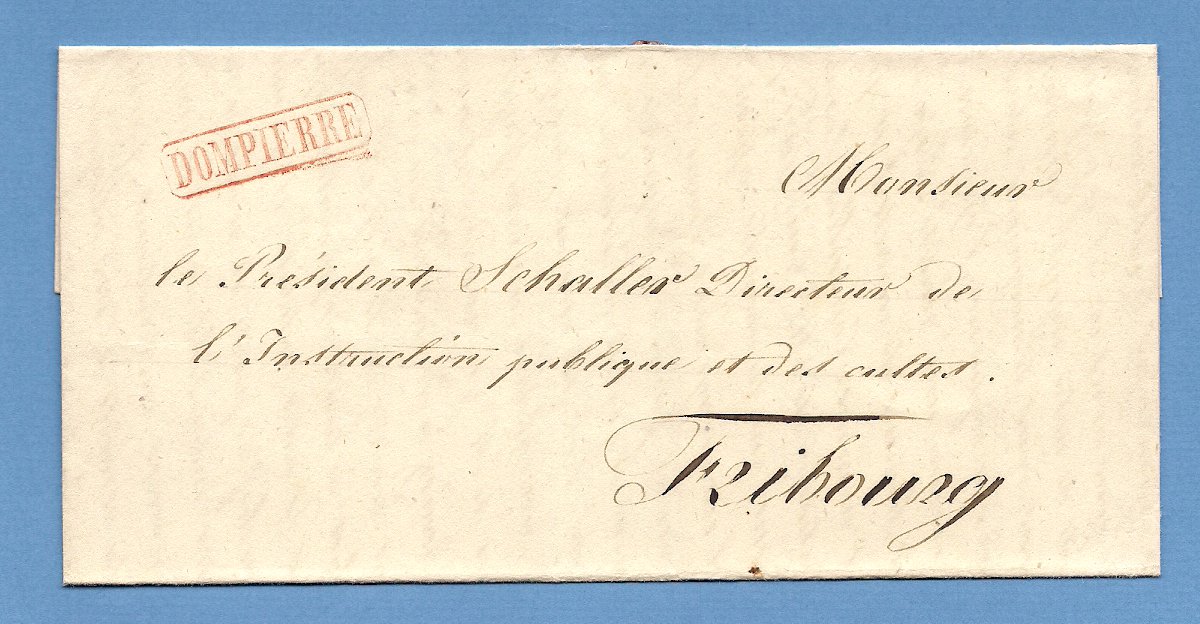 DOMPIERRE
Monsieur
le Président Schaller Directeur de
l'Instruction publique et des cultes.
Fribourg